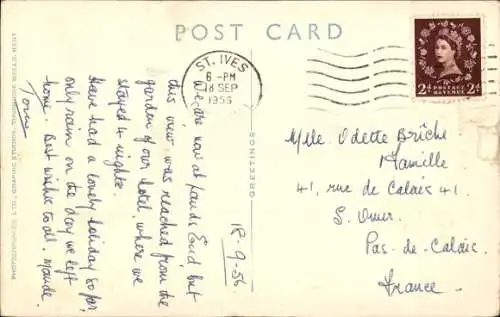 POST CARD
ST. IVES
6 - PM
18 SEP
1956
2d POSTAGE REVENUE 2d
18-9-56.
We are now at Lands End but
this view was reached from the
garden of our hotel, where we
stayed 4 nights.
Have had a lovely holiday so far,
only rain on the day we left
home. Best wishes to all. Maude.
GREETINGS
Mlle. Odette Brîche
Famille
41, rue de Calais 41.
S. Omer.
Pas-de-Calais.
France.